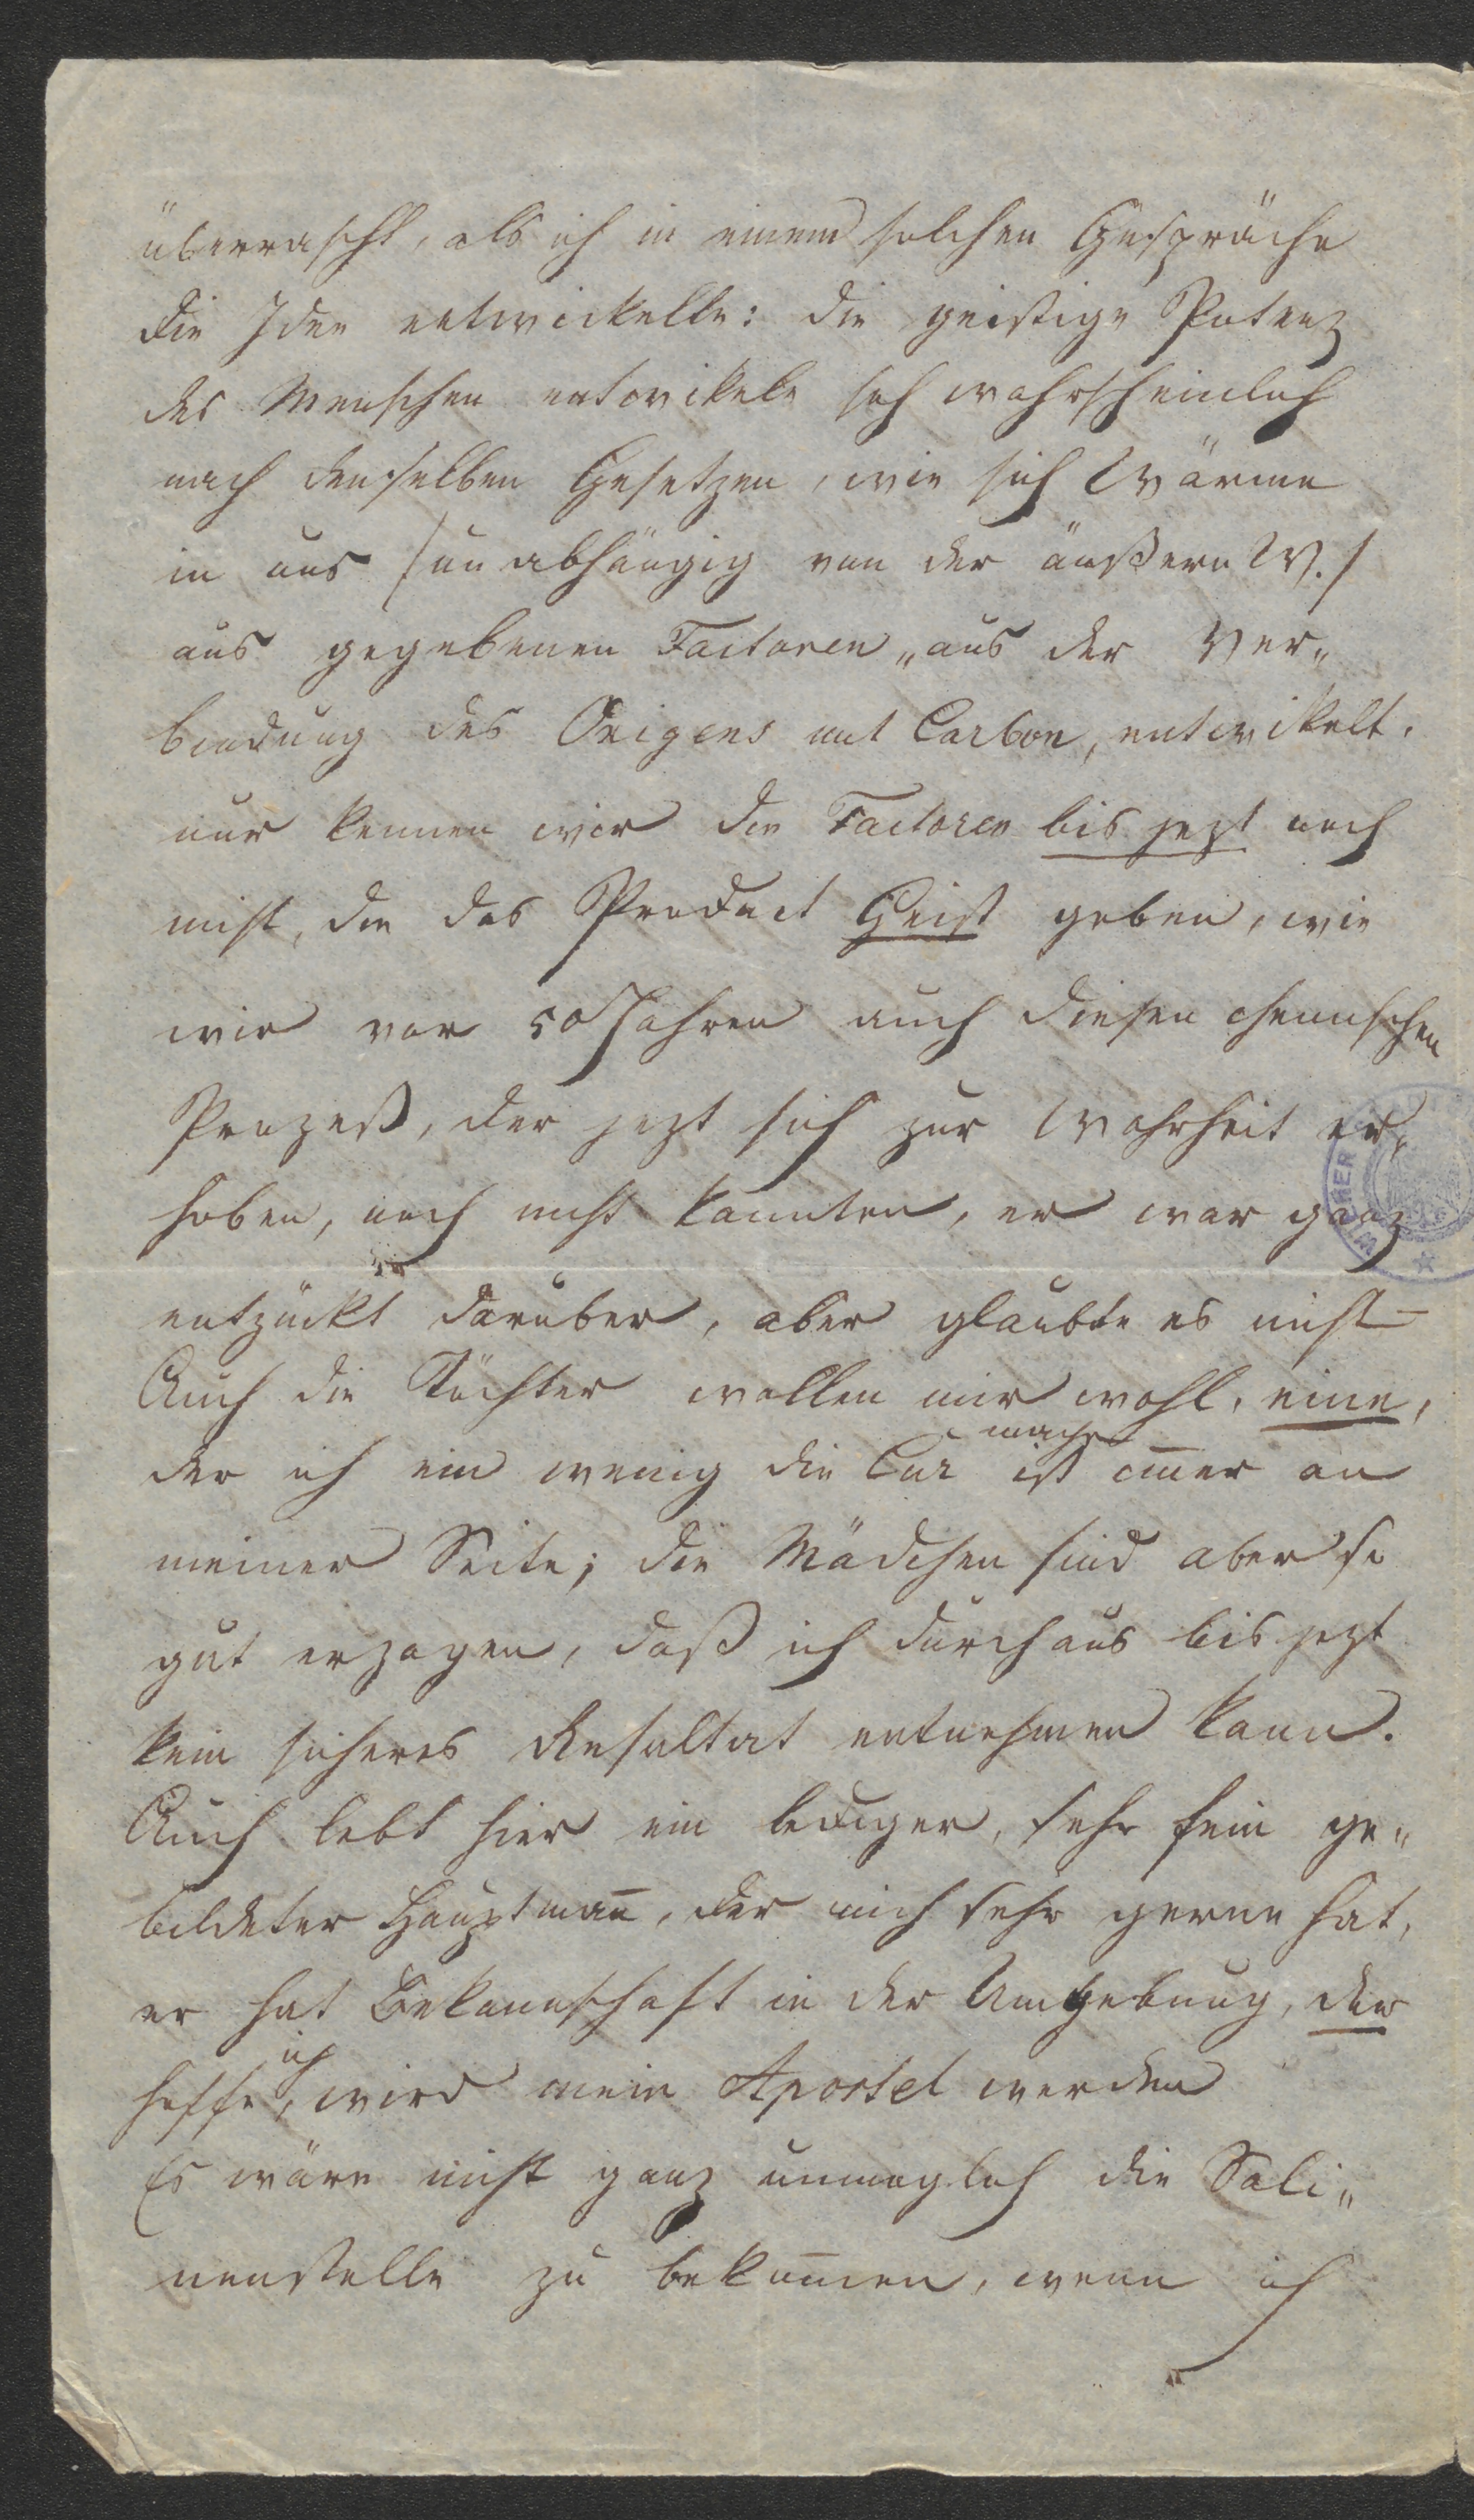 überrascht, als ich in einem solchen Gespräche
die Idee entwickelte: die geistige Potenz
des Menschen entwikele sich wahrscheinlich
nach denselben Gesetzen, wie sich Wärme
in uns /unabhängig von der äußern W./
aus gegebenen Factoren „aus der Ver„
bindung des Oxigens mit Carbon, entwikelt.
nur kennen wir die Factoren bis jezt noch
nicht, die das Product Geist geben, wie
wir vor 50 Jahren auch diesen chemischen
Prozeß, der jezt sich zur Wahrheit er„
hoben, noch nicht kannten, er war ganz
entzückt darüber, aber glaubte es nicht –
Auch die Töchter wollen mir wohl, eine,
der ich ein wenig die Cur mache ist im̄er an
meiner Seite; die Mädchen sind aber so
gut erzogen, daß ich durchaus bis jezt
kein sicheres Resultat entnehmen kann.
Auch lebt hier ein lediger, sehr fein ge„
bildeter Hauptman̄, der mich sehr gerne hat,
er hat Bekanntschaft in der Umgebung, der
hoffe ich, wird mein Apostel werden
Es wäre nicht ganz unmöglich die Sali„
nenstelle zu bekom̄en, wenn ich
WIENER